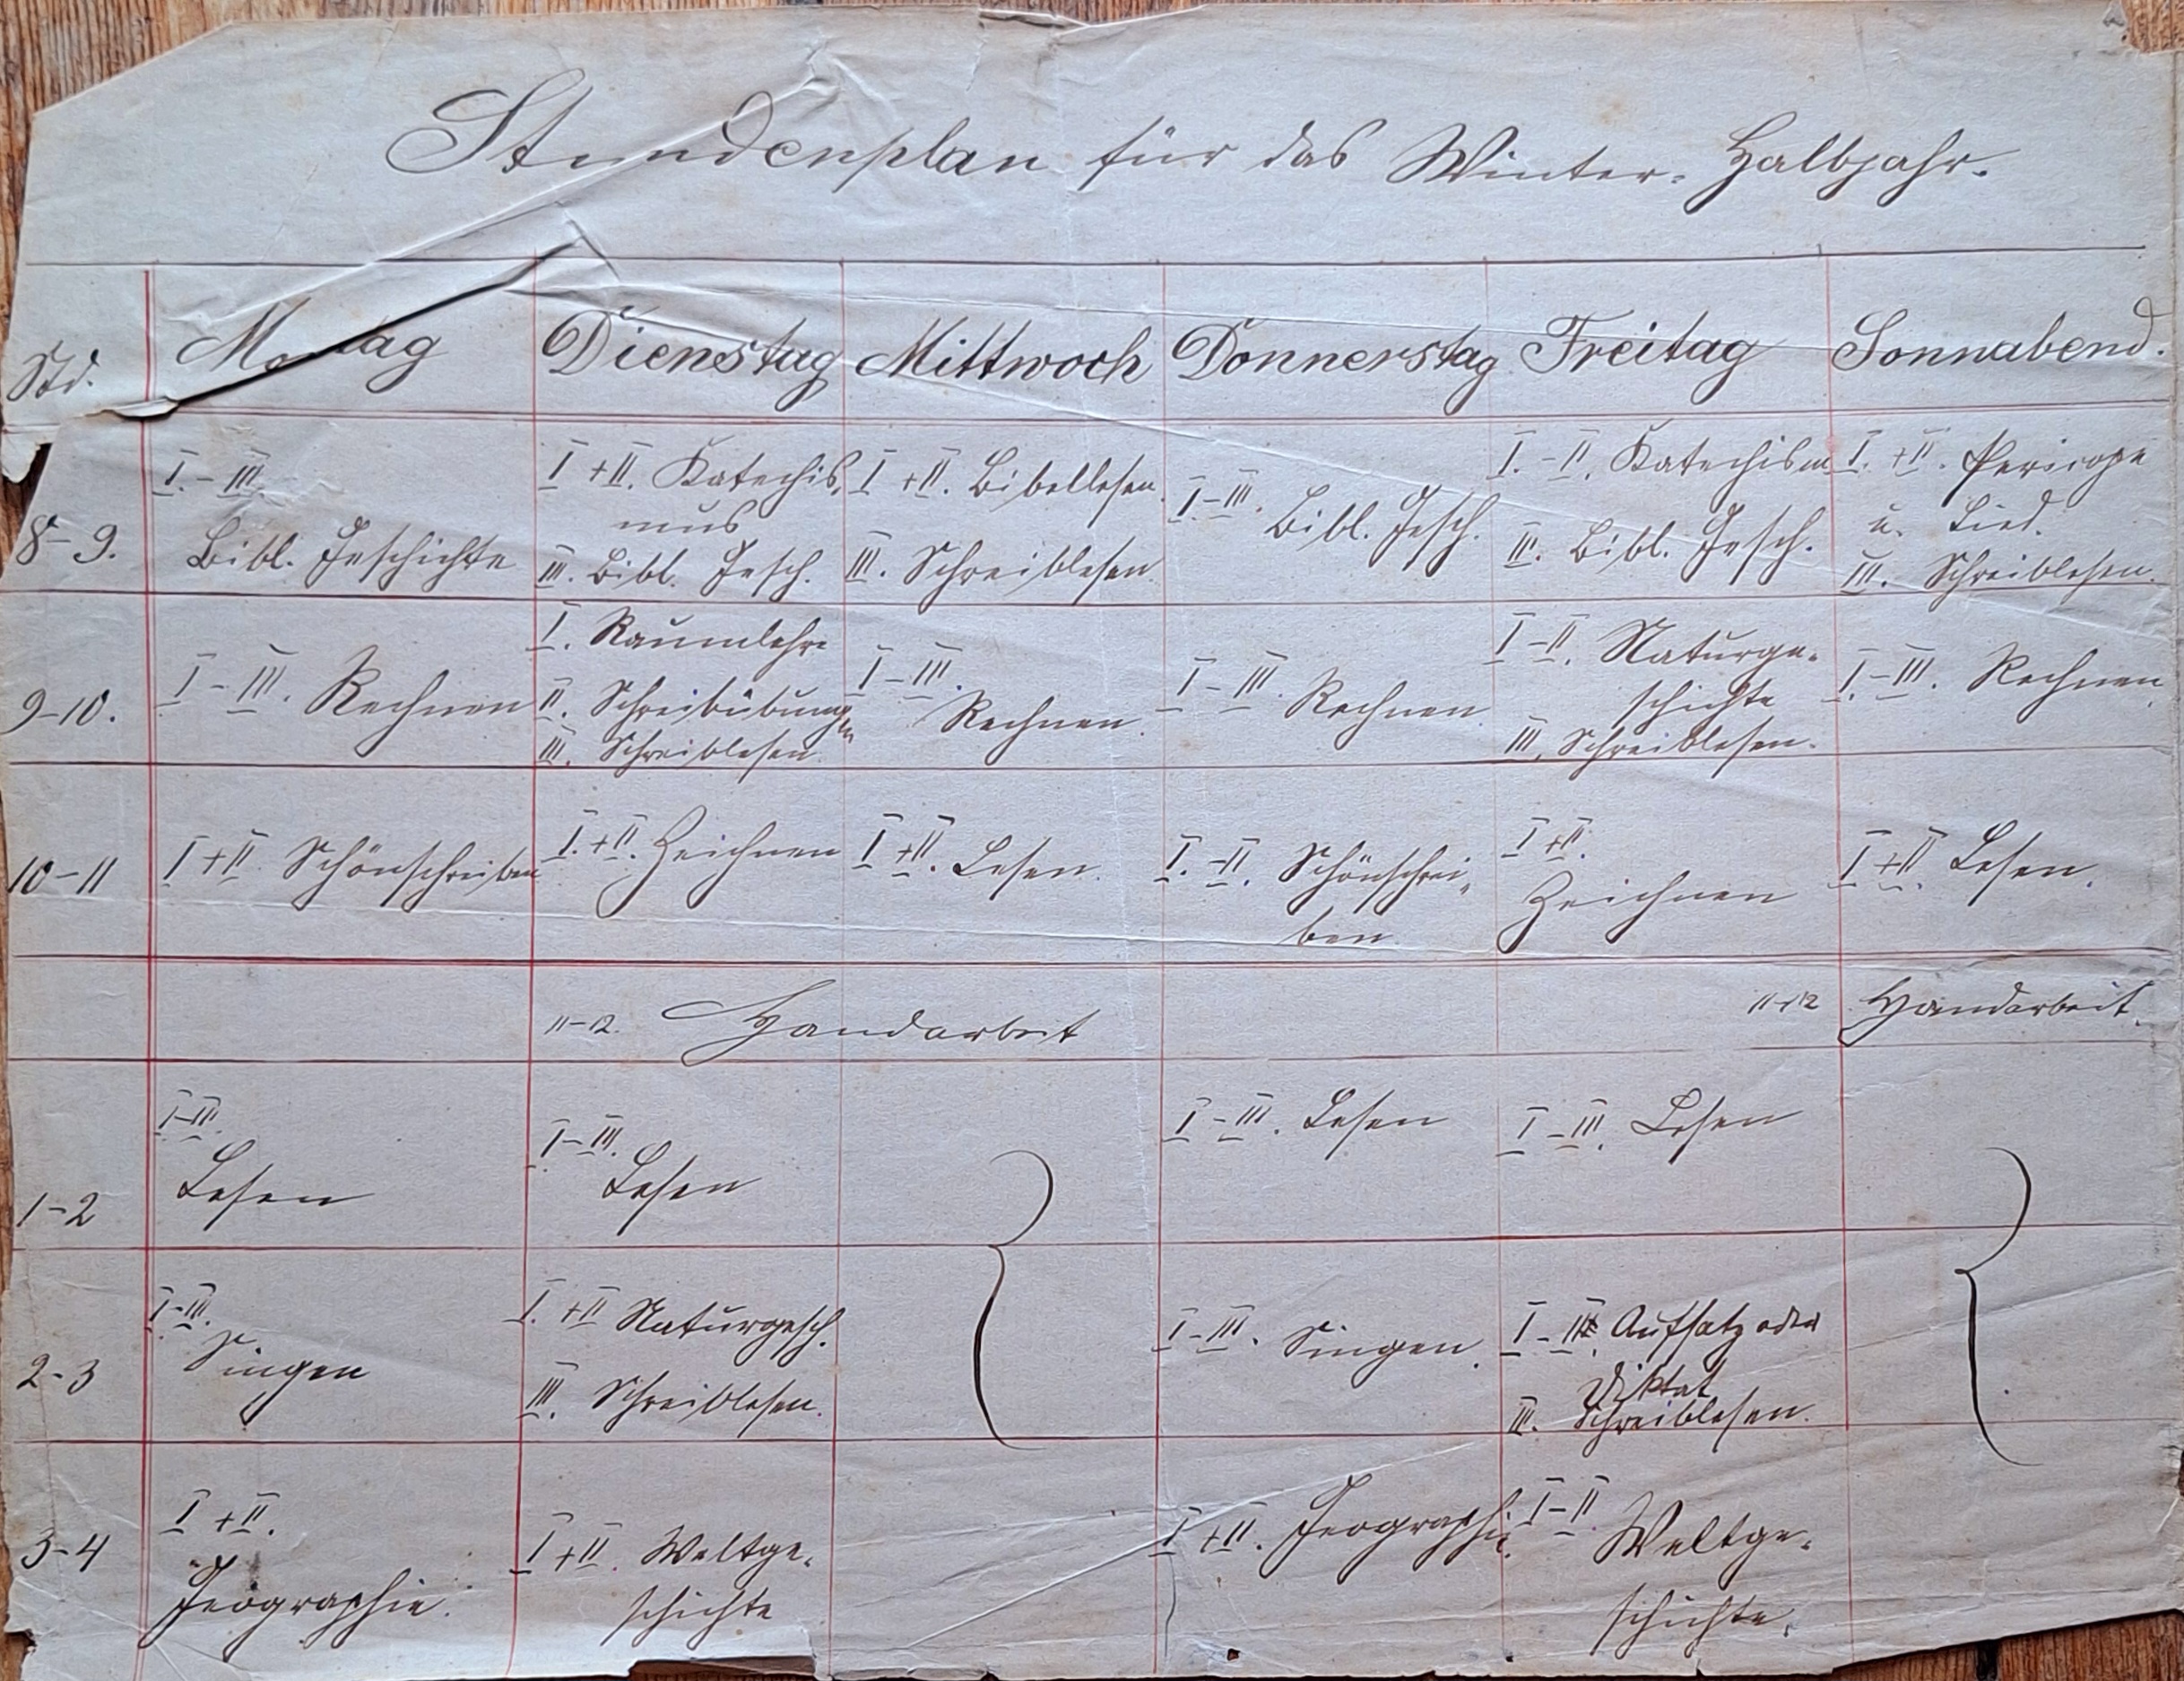 Stundenplan für das Winter-Halbjahr.
Std. Montag Dienstag Mittwoch Donnerstag Freitag Sonnabend.
8-9.
I.-III.
Bibl. Geschichte
I+II. Katechis-
mus
III. Bibl. Gesch.
I+II. Bibellesen.
III. Schreiblesen.
I-III.
Bibl. Gesch.
I.-II. Katechism
III. Bibl. Gesch.
I.+II. Pericope
u. Lied.
III. Schreiblesen.
9-10.
I-III. Rechnen
I. Raumlehre
II. Schreibübungen
III. Schreiblesen.
I-III.
Rechnen.
I-III. Rechnen.
I-II. Naturge-
schichte
III. Schreiblesen.
I.-III. Rechnen.
10-11
I+II. Schönschreiben
I.+II. Zeichnen
I+II. Lesen.
I.-II. Schönschrei-
ben.
I+II.
Zeichnen
I+II. Lesen.
11-12. Handarbeit
11-12 Handarbeit.
1-2
I-III.
Lesen
I-III.
Lesen
I-III. Lesen
I-III. Lesen
2-3
I-III.
Singen
I.+II Naturgesch.
III. Schreiblesen.
I-III. Singen.
I-II. Aufsatz oder
Diktat
III. Schreiblesen.
3-4
I+II.
Geographie.
I+II. Weltge-
schichte
I+II. Geographie.
I-II.
Weltge-
schichte.